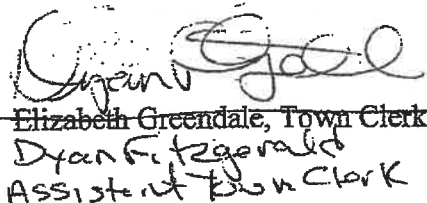 Elizabeth Greendale, Town Clerk
Dyan Fitzgerald
Assistant Town Clerk